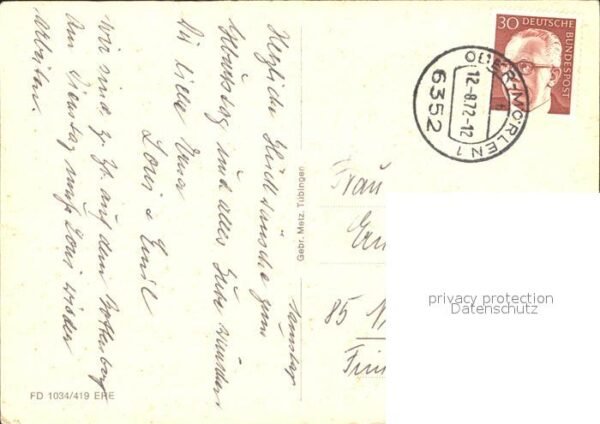 Samstag
Herzliche Glückwünsche zum
Ehrentag und alles Gute wünschen
Dir liebe
Loni & Emil
Wir sind z. Zt. auf dem
Am Dienstag muß Loni wieder
arbeiten.
Gebr. Metz, Tübingen
FD 1034/419 ERE
30 DEUTSCHE
BUNDESPOST
OBER-MÖRLEN 1
12.-8.72-12
6352
Frau
85
privacy protection
Datenschutz